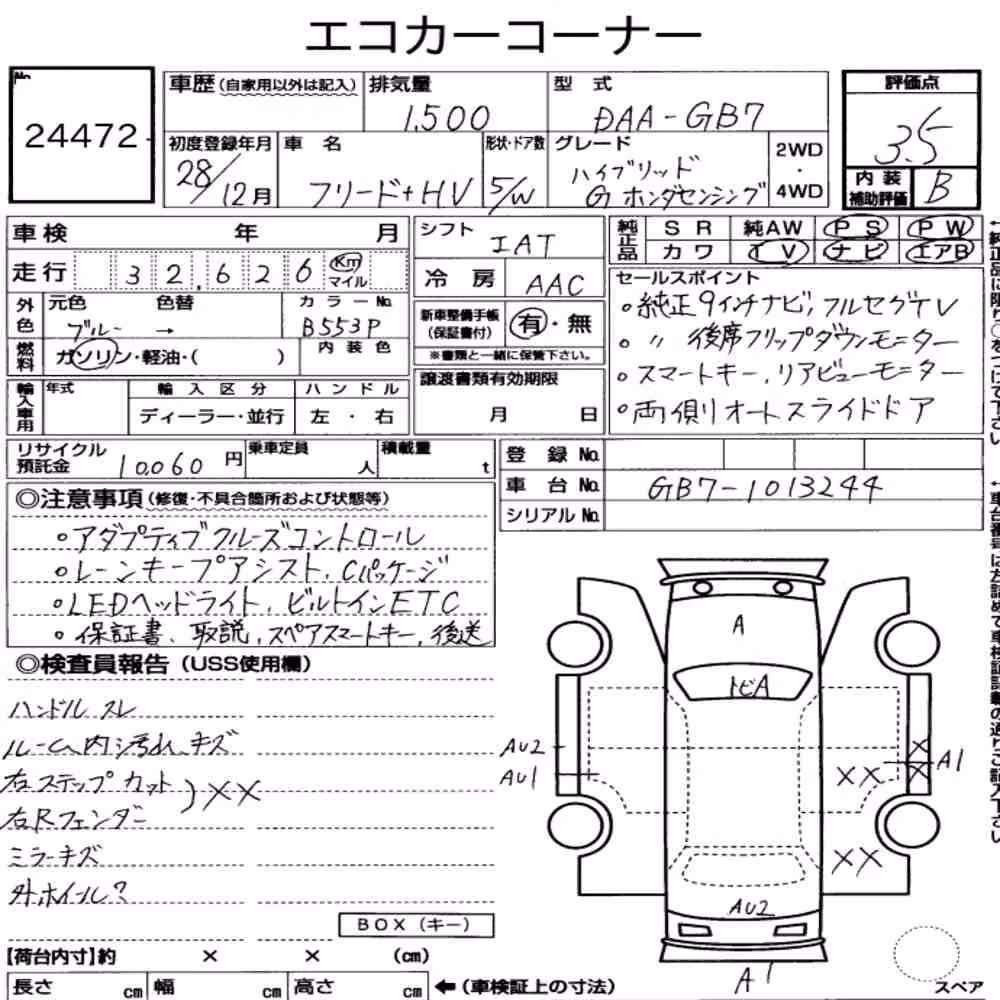 エコカーコーナー
No.
24472
車歴 (自家用以外は記入)
排気量
1,500
型 式
DAA-GB7
評価点
3.5
初度登録年月
28/12月
車 名
フリード+HV
形状・ドア数
5/W
グレード
ハイブリッド
G ホンダセンシング
2WD
・
4WD
内 装
補助評価
B
車 検 年 月
走 行 32,626 Km
マイル
シフト
IAT
冷 房
AAC
純正品
S R 純AW P S P W
カ ワ T V ナビ エアB
外色
元色 色替
ブルー →
カラーNo.
B553P
燃料
ガソリン・軽油・( )
内 装 色
新車整備手帳
(保証書付)
有・無
※書類と一緒に保管下さい。
セールスポイント
○純正9インチナビ,フルセグTV
○ 〃 後席フリップダウンモニター
○スマートキー,リアビューモニター
○両側オートスライドドア
輸入車用
年式
輸 入 区 分
ディーラー・並行
ハ ン ド ル
左 ・ 右
譲渡書類有効期限
月 日
リサイクル
預託金
10,060 円
乗車定員
人
積載量
t
登 録 No.
車 台 No. GB7-1013244
シリアル No.
◎注意事項(修復・不具合箇所および状態等)
○アダプティブクルーズコントロール
○レーンキープアシスト,Cパッケージ
○LEDヘッドライト,ビルトインETC
○保証書、取説,スペアスマートキー,後送
◎検査員報告(USS使用欄)
ハンドルスレ
ルーム内汚れ、キズ
右ステップカット
右Rフェンダー
)××
ミラーキズ
外ホイール?
A
トビA
AU2
AU1
×
×
A1
××
××
AU2
A1
BOX(キー)
【荷台内寸】約 × × (cm)
長さ cm 幅 cm 高さ cm ←(車検証上の寸法)
スペア
←純正品に限り○をつけて下さい
←車台番号は左詰めで車検証記載の通りご記入下さい